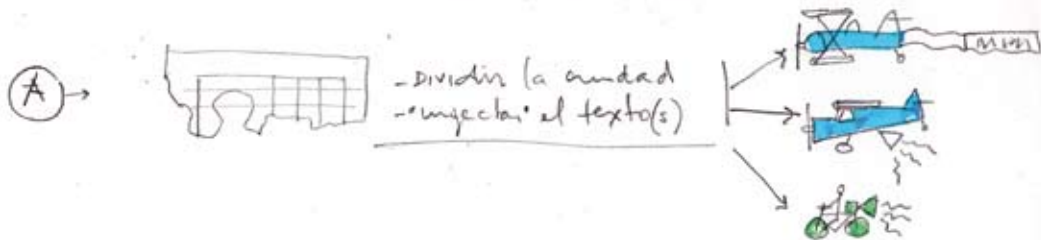 A
- Dividir la ciudad
- "inyectar" el texto(s)